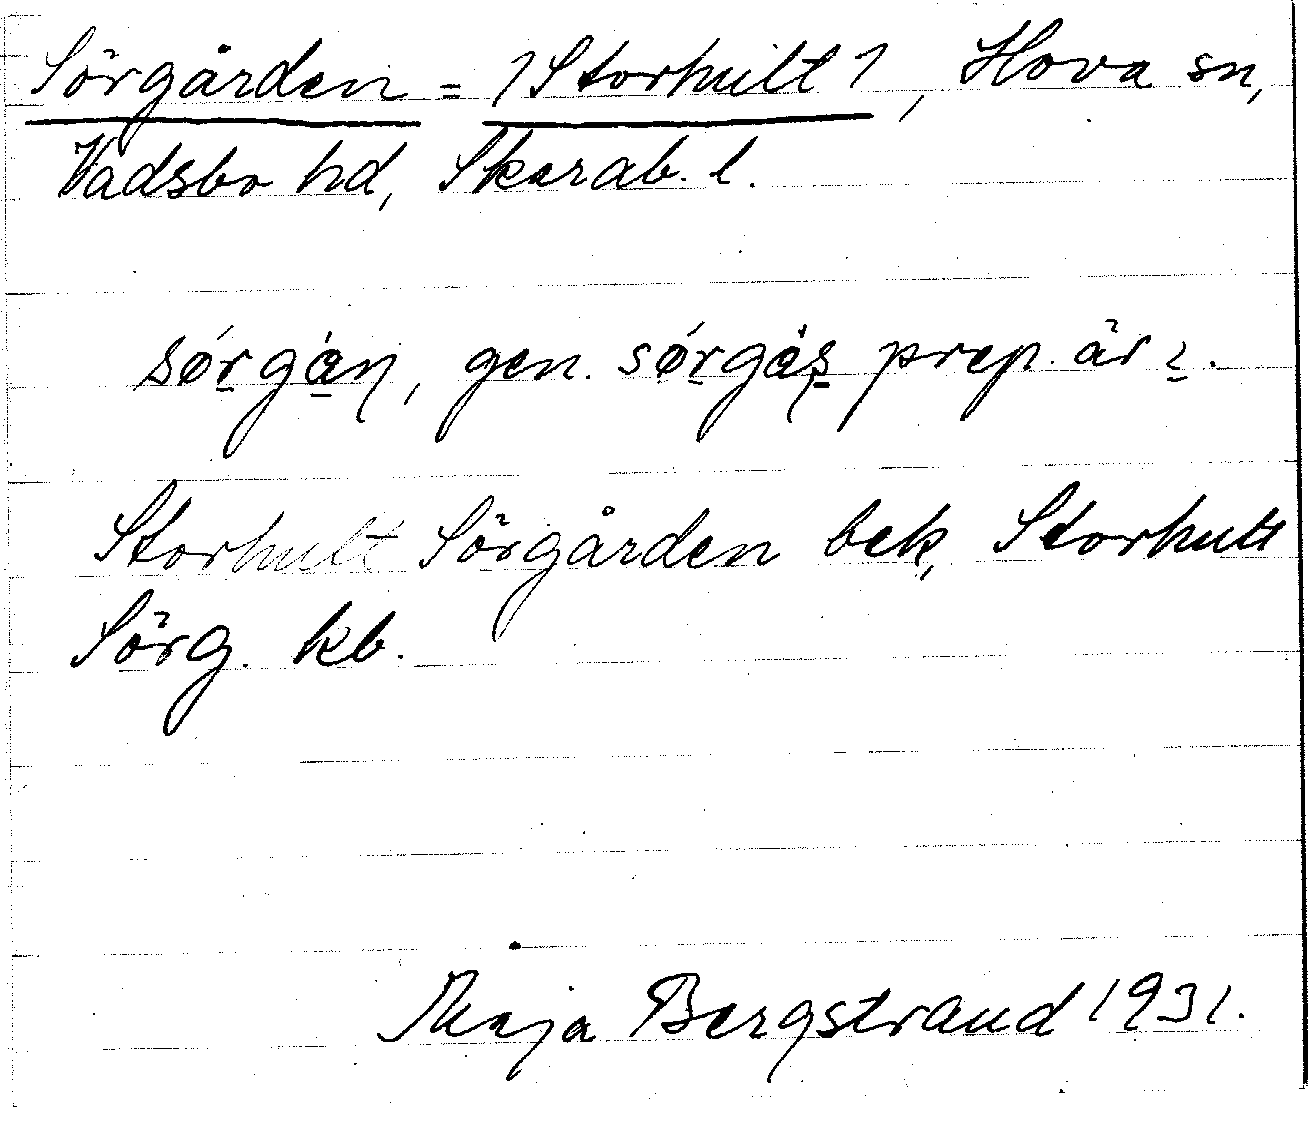 Sörgården = 1Storhult1, Hova sn,
Vadsbo hd, Skarab. l.
gen. prep. är
Storhult Sörgården bek, Storhult
Sörg. kb.
Maja Bergstrand 1931.